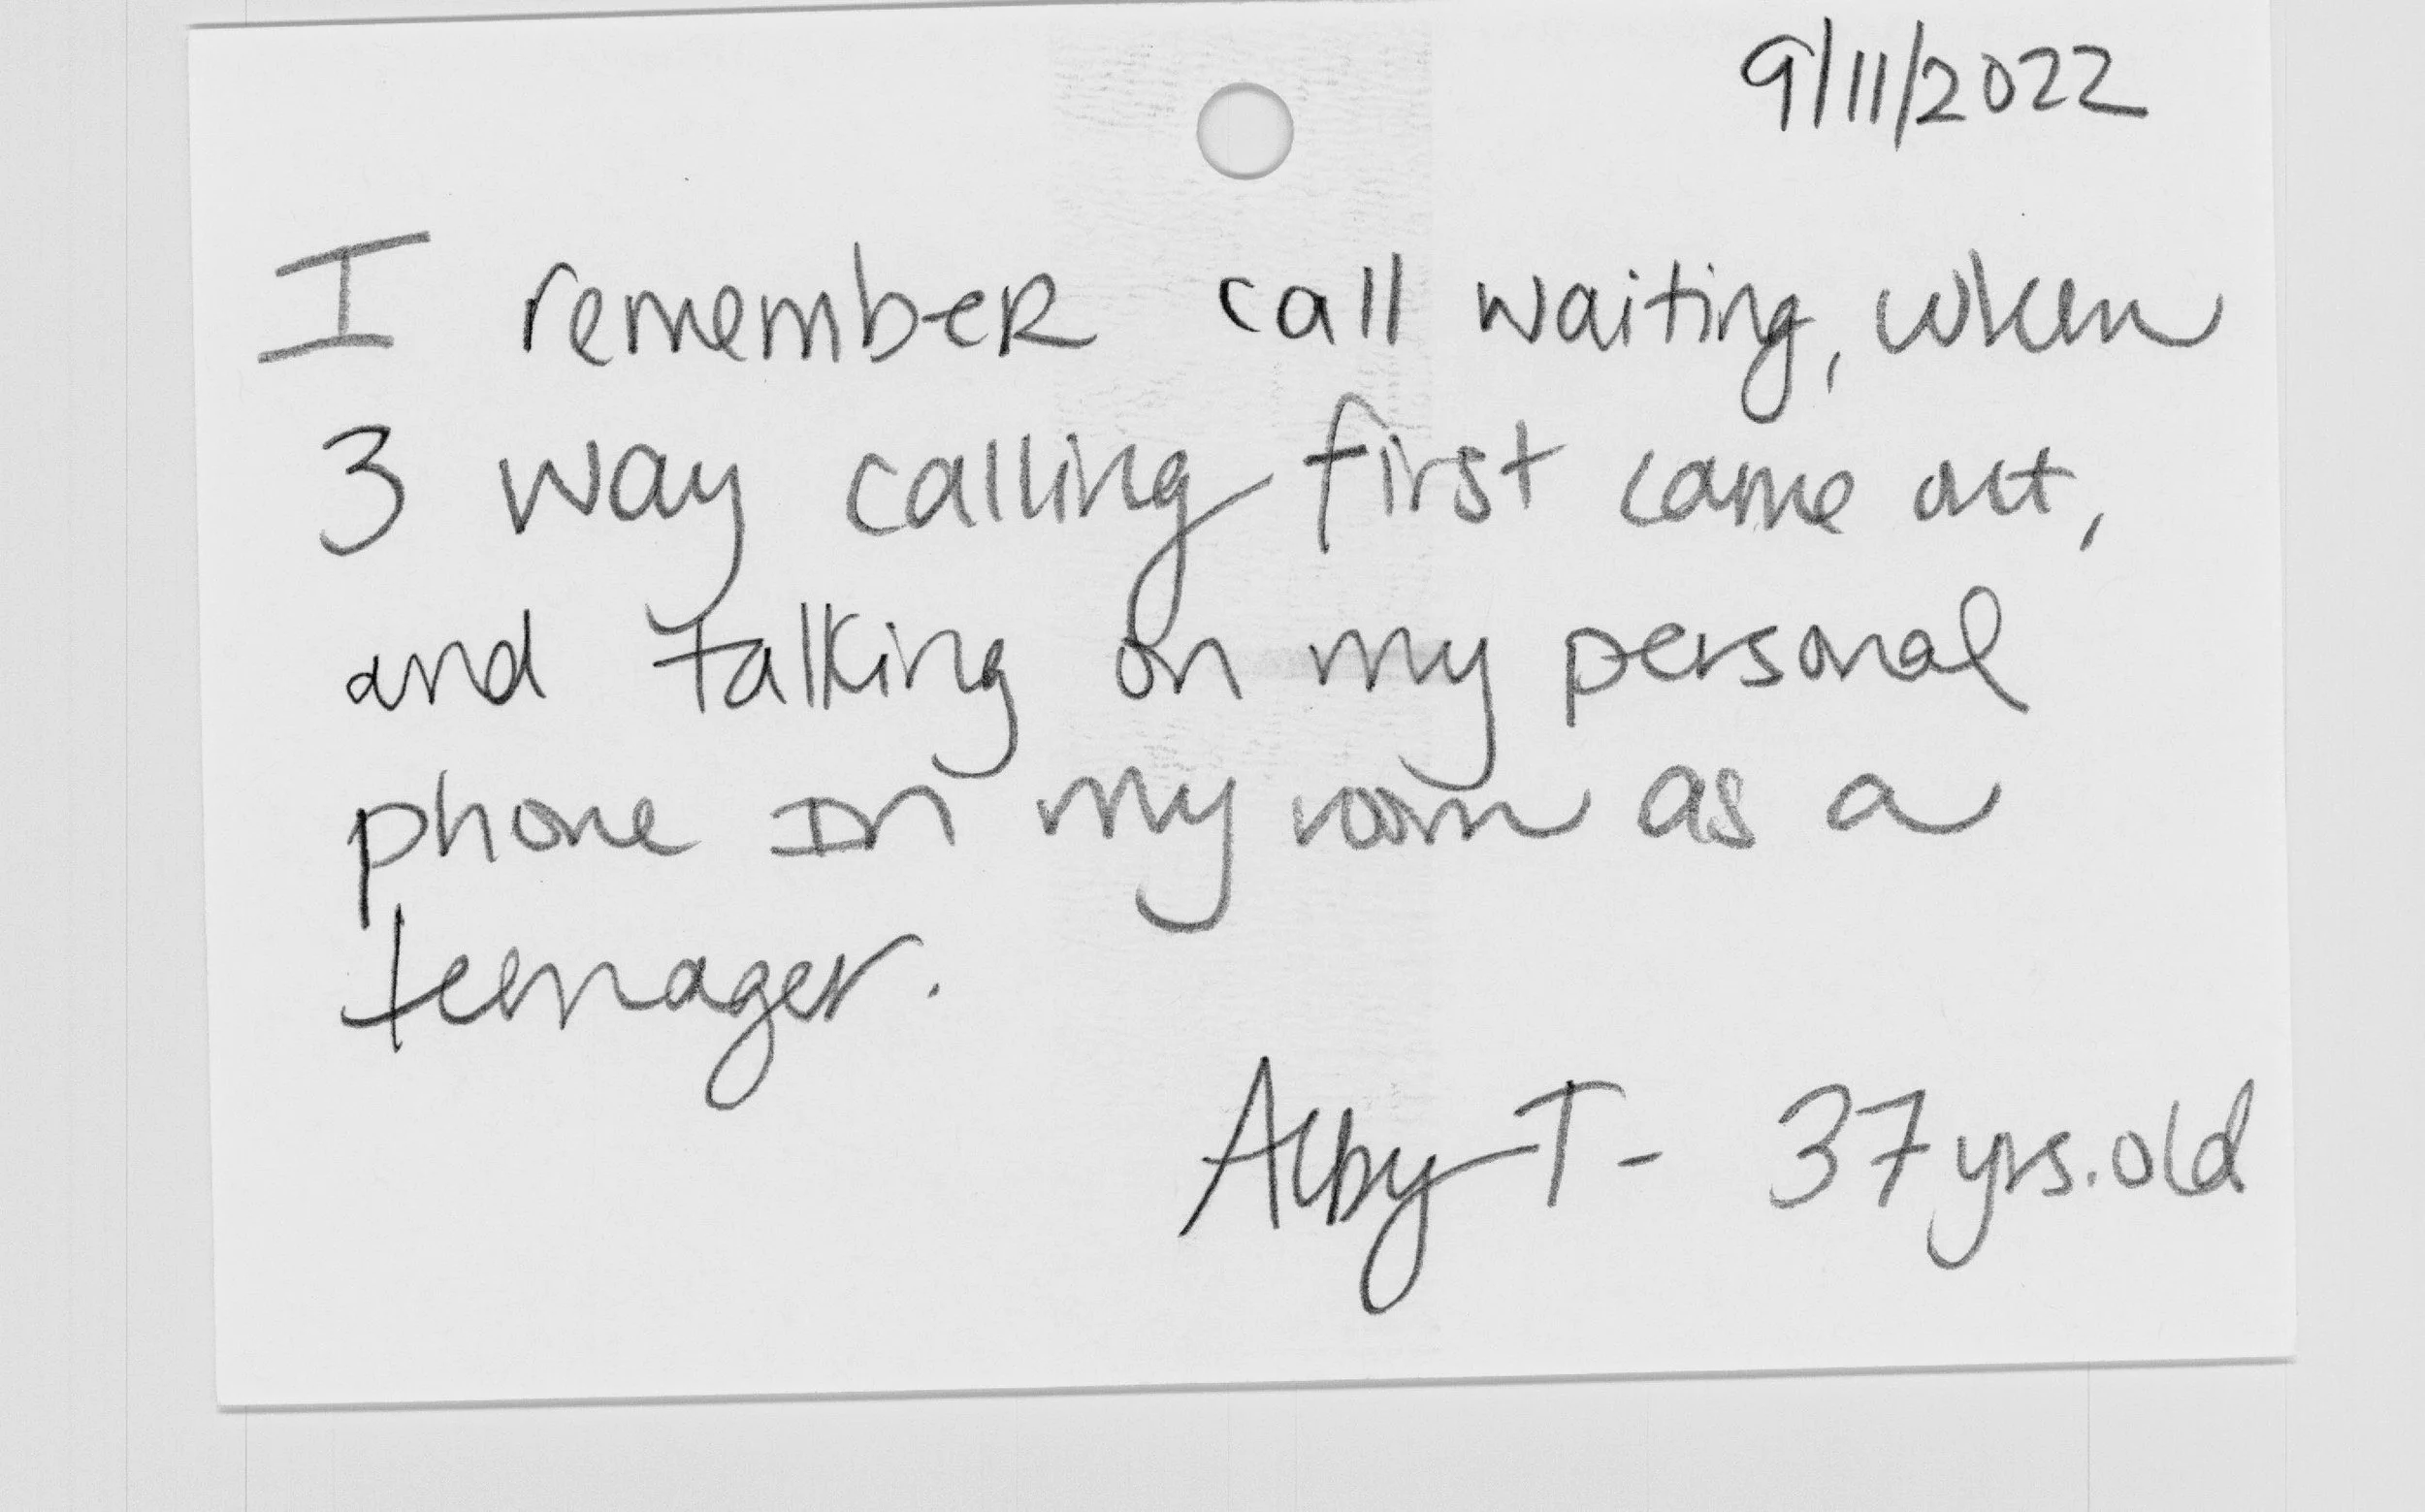 9/11/2022
I remember call waiting, when
3 way calling first came out,
and talking on my personal
phone in my room as a
teenager.
T- 37 yrs. old